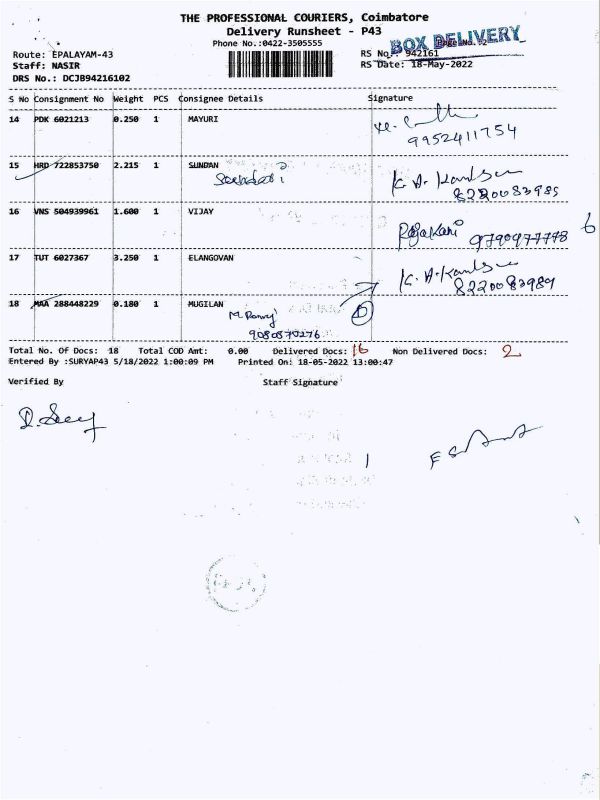 THE PROFESSIONAL COURIERS, Coimbatore
Delivery Runsheet - P43
Phone No.:0422-3505555
BOX DELIVERY
Route: EPALAYAM-43
RS No.: 942161
Staff: NASIR
RS Date: 18-May-2022
DRS No.: DCJB94216102
S No Consignment No Weight PCS Consignee Details Signature
14 PDK 6021213 0.250 1 MAYURI
9952411754
15 HRD 722853750 2.215 1 SUNDAN
8220083985
16 VNS 504939961 1.600 1 VIJAY
Rajakani 9790977778 6
17 TUT 6027367 3.250 1 ELANGOVAN
8220083989
18 MAA 288448229 0.180 1 MUGILAN
9080870276
Total No. Of Docs: 18 Total COD Amt: 0.00 Delivered Docs: 16 Non Delivered Docs: 2
Entered By :SURYAP43 5/18/2022 1:00:09 PM Printed On: 18-05-2022 13:00:47
Verified By Staff Signature